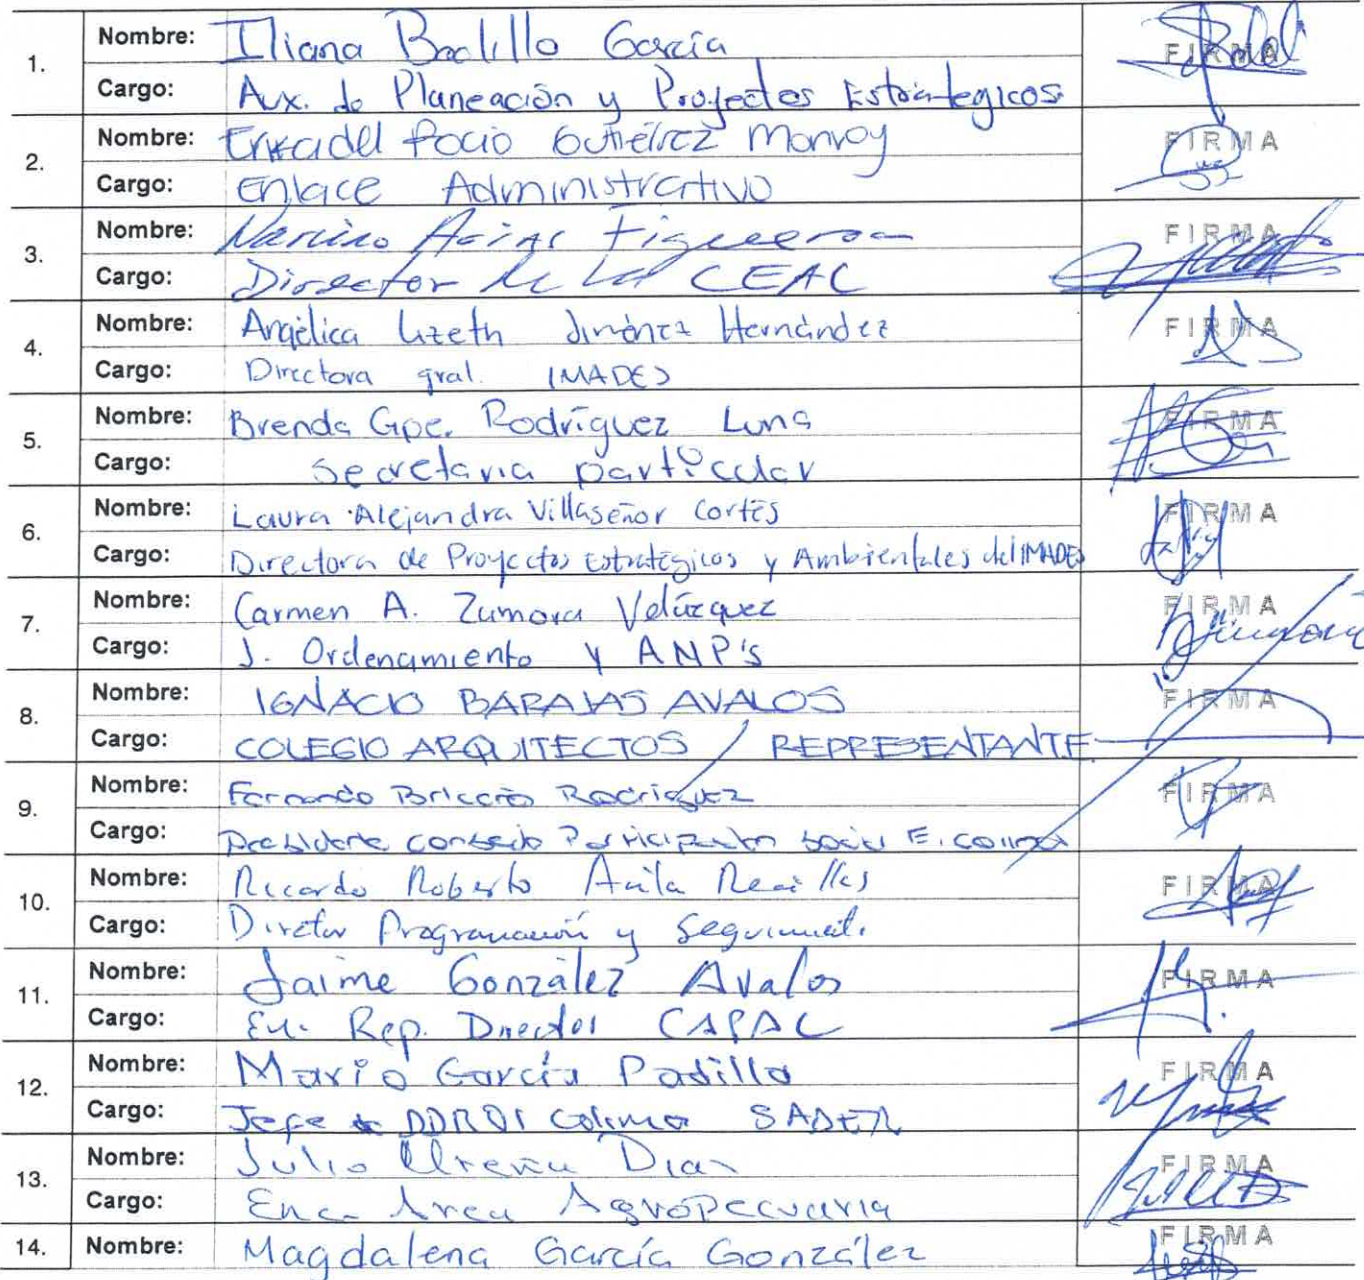 1. Nombre: Iliana Badillo García FIRMA
Cargo: Aux. de Planeación y Proyectos Estrategicos
2. Nombre: Erika del Rocio Gutiérrez Monroy FIRMA
Cargo: Enlace Administrativo
3. Nombre: Arias Figueroa FIRMA
Cargo: Director de la CEAC
4. Nombre: Angélica Lizeth Jiménez Hernández FIRMA
Cargo: Directora gral. IMADES
5. Nombre: Brenda Gpe. Rodríguez Luna FIRMA
Cargo: Secretaria particular
6. Nombre: Laura Alejandra Villaseñor Cortés FIRMA
Cargo: Directora de Proyectos Estratégicos y Ambientales del IMADES
7. Nombre: Carmen A. Zamora Velázquez FIRMA
Cargo: J. Ordenamiento y ANP's
8. Nombre: IGNACIO BARAJAS AVALOS FIRMA
Cargo: COLEGIO ARQUITECTOS / REPRESENTANTE
9. Nombre: Fernando Briceño Rodriguez FIRMA
Cargo: Presidente consejo Participación social E. colima
10. Nombre: Ricardo Roberto Avila FIRMA
Cargo: Director Programación y Seguimiento
11. Nombre: Jaime González Avalos FIRMA
Cargo: En Rep. Director CAPAC
12. Nombre: Mario García Padilla FIRMA
Cargo: Jefe DDR01 Colima SADER
13. Nombre: Julio Ureña Diaz FIRMA
Cargo: Enc. Area Agropecuaria
14. Nombre: Magdalena García González FIRMA